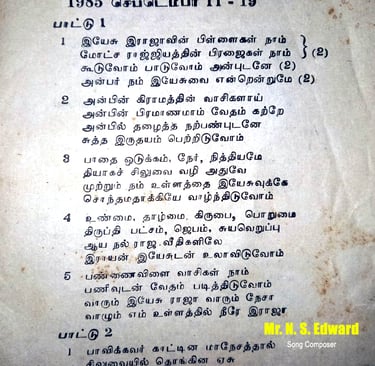 1985 செப்டெம்பர் 11 - 19
பாட்டு 1
1 இயேசு இராஜாவின் பிள்ளைகள் நாம்
மோட்ச ராஜ்ஜியத்தின் பிரஜைகள் நாம் } (2)
கூடுவோம் பாடுவோம் அன்புடனே (2)
அன்பர் நம் இயேசுவை என்றென்றுமே (2)
2 அன்பின் கிராமத்தின் வாசிகளாய்
அன்பின் பிரமாணமாம் வேதம் கற்றே
அன்பில் தழைத்த நற்பண்புடனே
சுத்த இருதயம் பெற்றிடுவோம்
3 பாதை ஒடுக்கம், நேர், நித்தியமே
தியாகச் சிலுவை வழி அதுவே
முற்றும் நம் உள்ளத்தை இயேசுவுக்கே
சொந்தமதாக்கியே வாழ்ந்திடுவோம்
4 உண்மை, தாழ்மை, கிருபை, பொறுமை
திருப்தி பட்சம், ஜெபம், சுயவெறுப்பு
ஆய நல் ராஜ வீதிகளிலே
இராயன் இயேசுடன் உலாவிடுவோம்
5 பண்ணைவிளை வாசிகள் நாம்
பணிவுடன் வேதம் படித்திடுவோம்
வாரும் இயேசு ராஜா வாரும் நேசா
வாழும் எம் உள்ளத்தில் நீரே இராஜா
பாட்டு 2
1 பாவிக்கவர் காட்டின மாநேசத்தால்
சிலுவையில் தொங்கின ஏசு
Mr. N. S. Edward
Song Composer